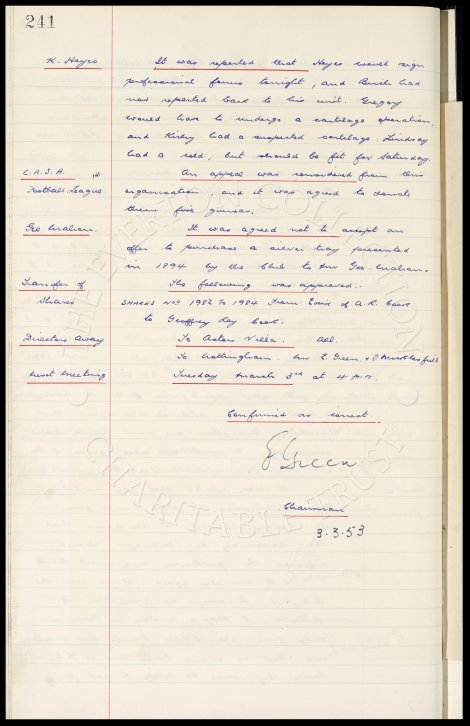 241
K. Hayes It was reported that Hayes would sign
professional forms tonight, and had
now reported back to his unit. Gregory
would have to undergo a cartilage operation
and Kirby had a suspected cartilage. Lindsay
had a cold, but should be fit for Saturday.
C.A.S.A. An appeal was considered from this
Football League organisation, and it was agreed to donate
them five guineas.
Geo Mahon. It was agreed not to accept an
offer to purchase a silver tray presented
in 1894 by the Club to Mr Geo Mahon.
Transfer of The following was approved:-
Shares SHARES Nos 1982 To 1984 From of A.R.
to Geoffrey Ray
Directors Away To Aston Villa. All.
To Nottingham. Mr E. Green,
Next Meeting Tuesday March 3rd at 4 p.m.
Confirmed as correct.
E Green
Chairman
3.3.53
THE EVERTON COLLECTION
CHARITABLE TRUST